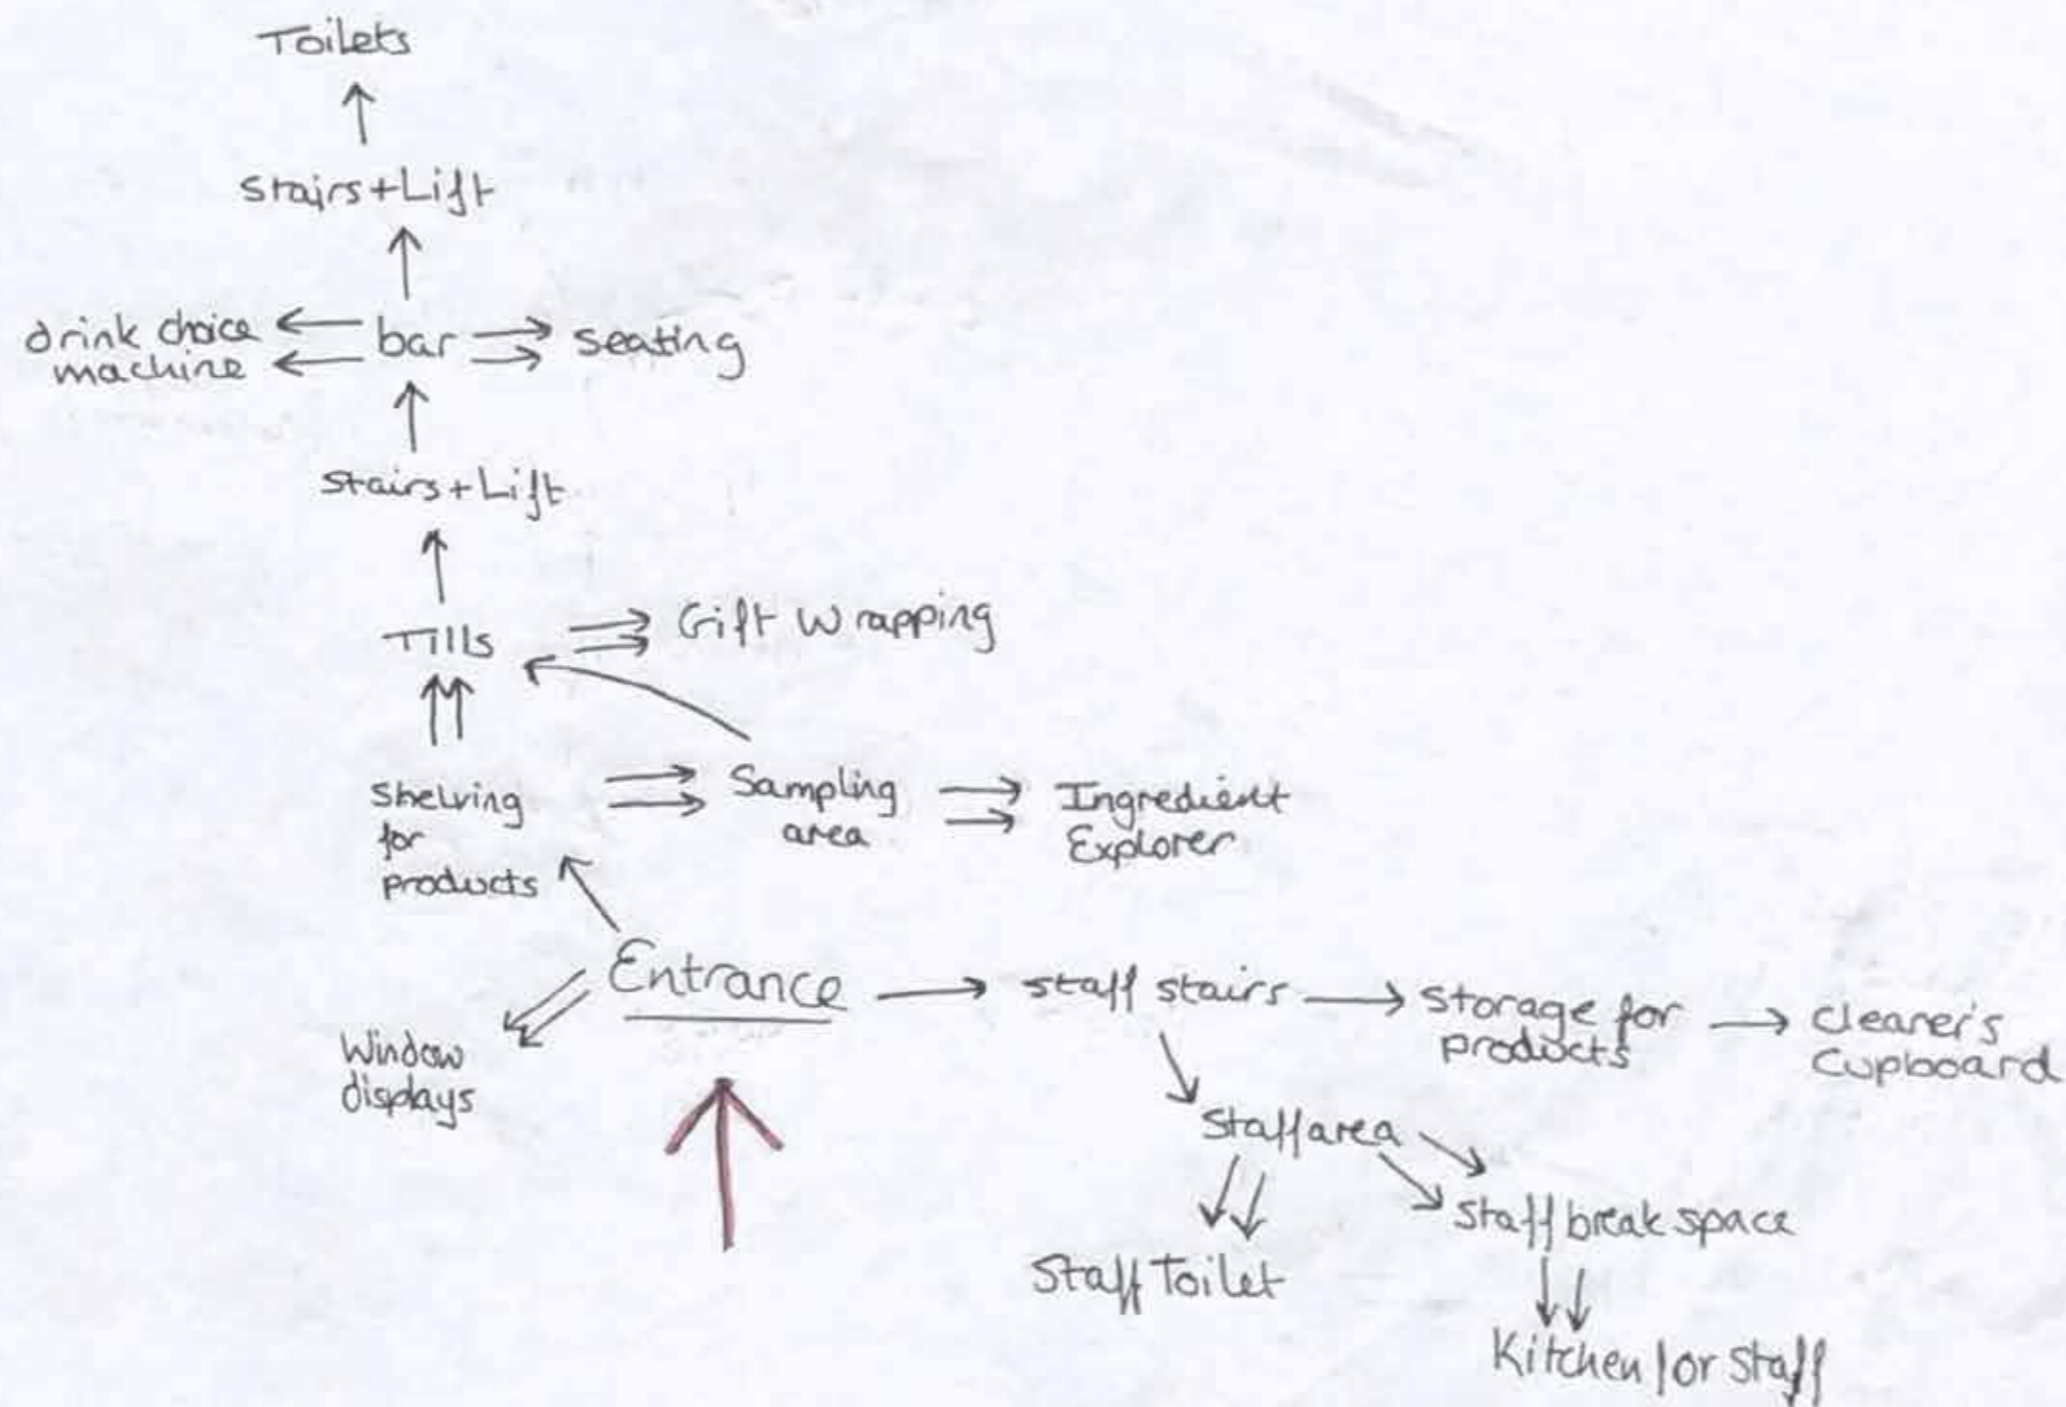 Toilets
Stairs+Lift
drink choice
machine
bar
seating
Stairs+Lift
Tills
Gift Wrapping
Shelving
for
products
Sampling
area
Ingredient
Explorer
Entrance
Window
displays
staff stairs
storage for
products
cleaner's
cupboard
Staff area
Staff break space
Staff Toilet
Kitchen for Staff